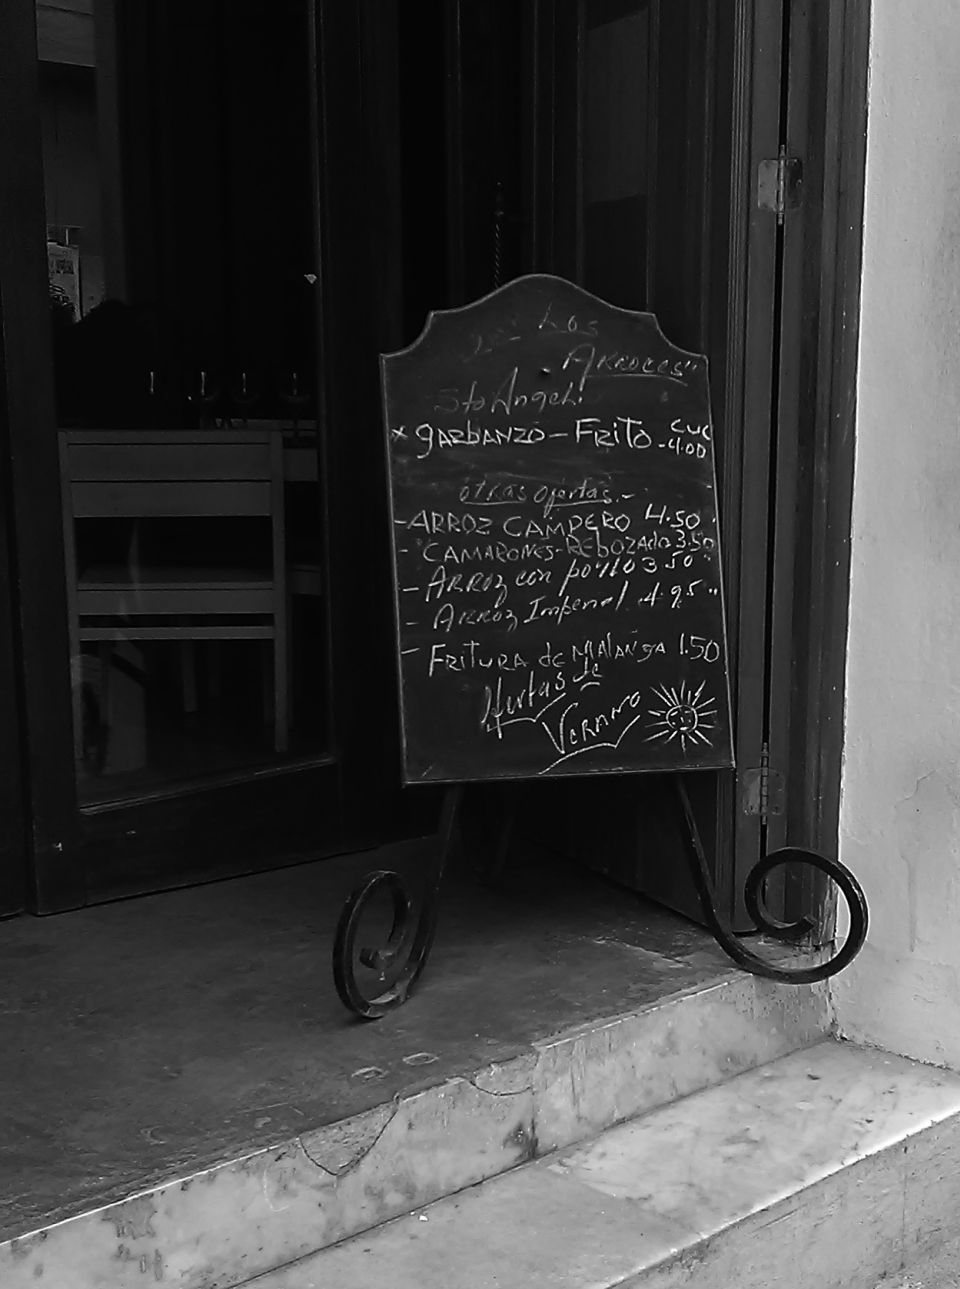 Los
Arroces"
Sto Angel.
* gARbANZO - FRITO - CUC 4.00
otras ofertas.-
- ARROZ CAMPERO 4.50
- CAMARONES - REbOZAdo 3.50 "
- ARRoz con pollo 3.50 "
- ARRoz Imperial . 4.95 "
- FRITURA de MAlANgA 1.50
ofertas de
Verano